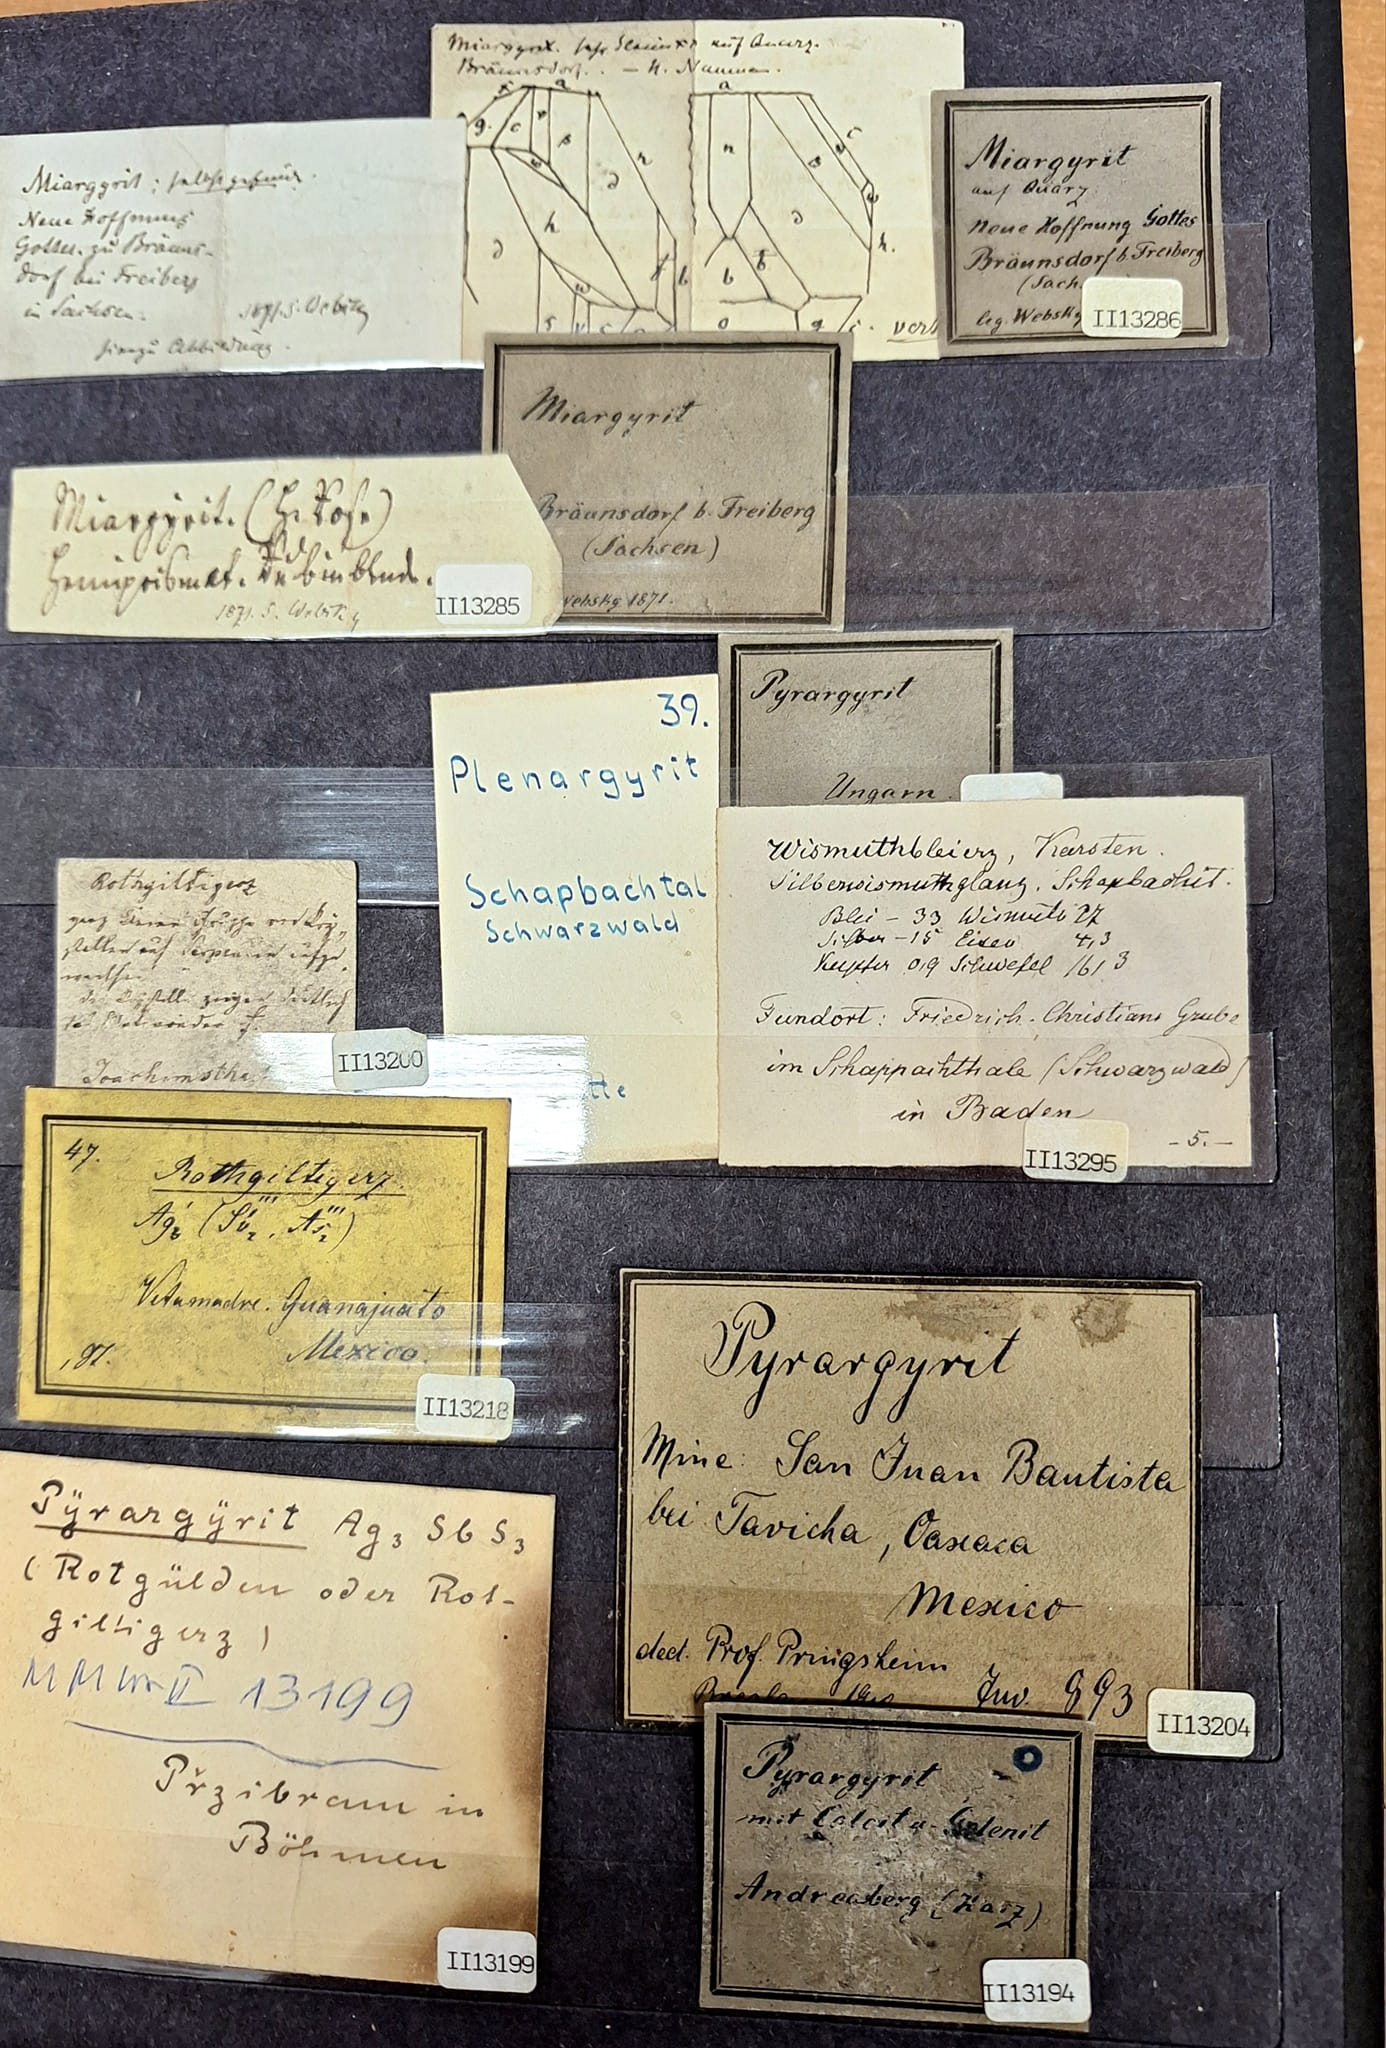 Miargyrit. sehr auf Quarz.
Bräunsdorf. –
Miargyrit; selbst gefund.
Neue Hoffnung
Gottes. zu Bräuns-
dorf bei Freiberg
in Sachsen.
1871. S. Websky
hierzu Abbildung.
Miargyrit
auf Quarz
neue Hoffnung Gottes
Bräunsdorf b. Freiberg
(Sach.
leg. Websky
II13286
Miargyrit
Bräunsdorf b. Freiberg
(Sachsen)
Websky 1871.
Miargyrit. (H. Rose)
hemiprismat. Rubinblende.
1871. S. Websky
II13285
39.
Plenargyrit
Schapbachtal
Schwarzwald
tte
Pyrargyrit
Ungarn
Wismuthbleierz, Karsten.
Silberwismuthglanz. Schapbachit.
Blei – 33 Wismuth 27
Silber – 15 Eisen 4,3
Kupfer 0,9 Schwefel 16,3
Fundort: Friedrich-Christians Grube
im Schappachthale (Schwarzwald)
in Baden
– 5. –
II13295
Rothgiltigerz
Joachimsthal
II13200
47.
Rothgiltigerz
Vetamadre. Guanajuato
Mexico.
II13218
Pyrargyrit
Mine: San Juan Bautista
bei Tavicha, Oaxaca
Mexico
ded. Prof. Pringsheim
Inv. 993
II13204
Pÿrargÿrit Ag3 Sb S3
(Rotgülden oder Rot-
giltigerz)
MMW II 13199
Přzibram in
Böhmen
II13199
Pyrargyrit
mit Calcit u. Galenit
Andreasberg (Harz)
II13194